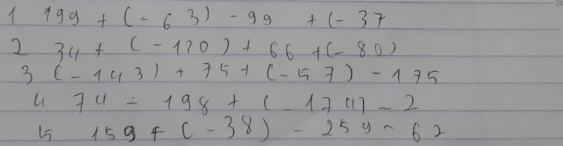 1 199 + (-63) - 99 + (-37
2 34 + (-120) + 66 + (-80)
3 (-143) + 75 + (-57) - 175
4 74 - 198 + (-174) - 2
5 159 + (-38) - 259 - 62